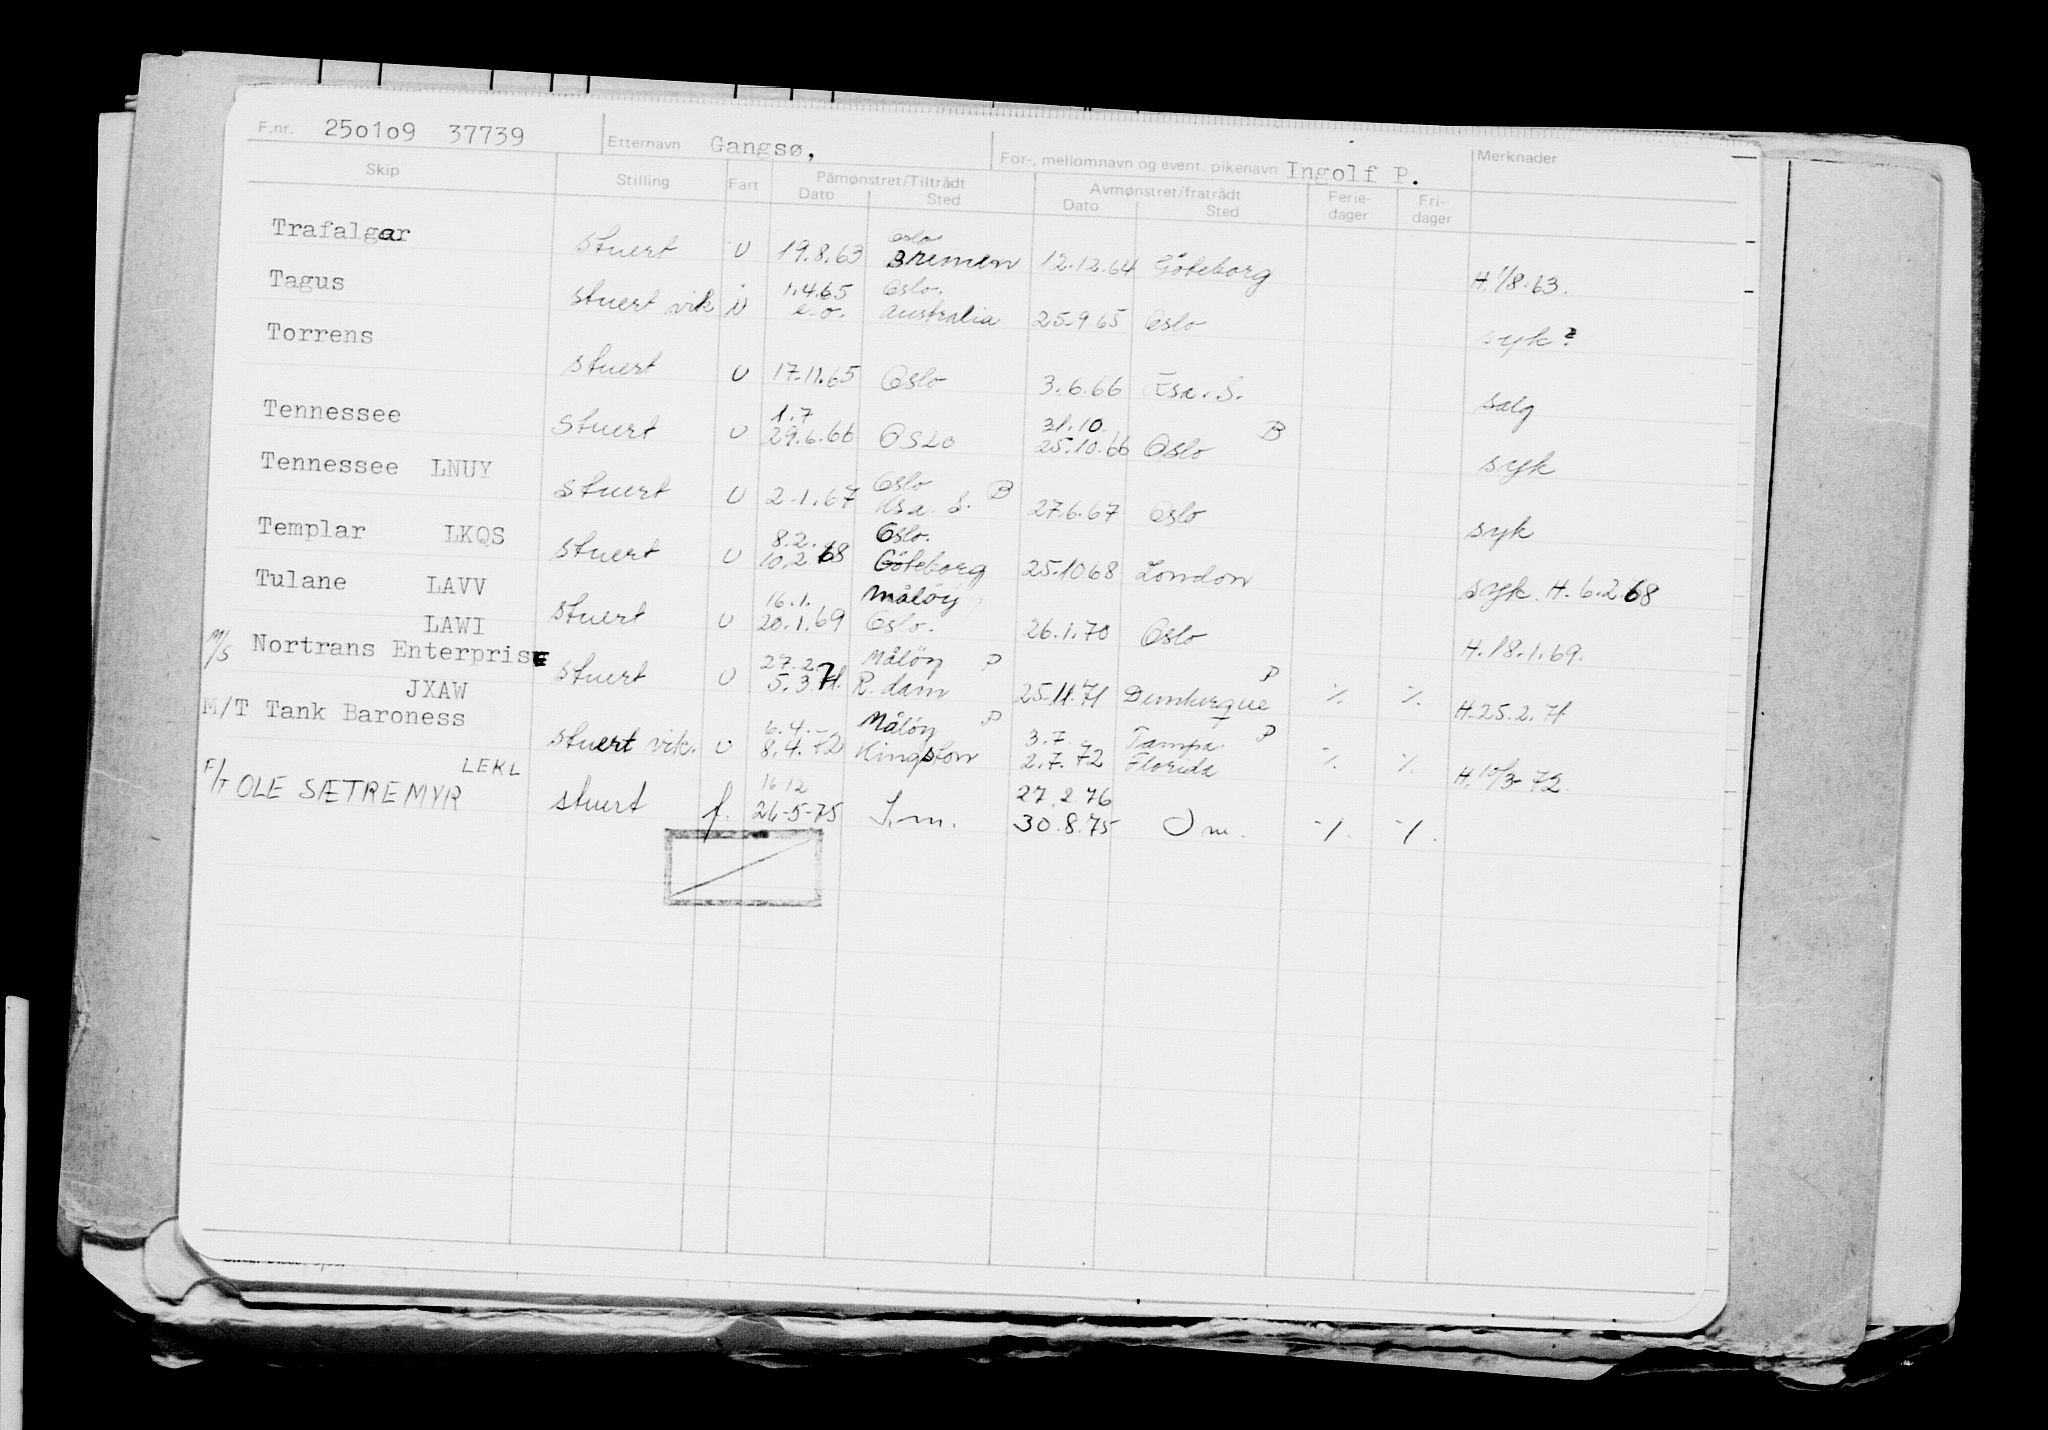 F.nr. 250109 37739 Etternavn Gangsø, For-, mellomnavn og event. pikenavn Ingolf P. Merknader
Skip Stilling Fart Påmønstret/Tiltrådt Avmønstret/fratrådt Ferie- Fri-
Dato Sted Dato Sted dager dager
Oslo
Trafalgar stuert U 19.8.63 Bremen 12.12.64 Göteborg H. 1/8.63.
1.4.65 Oslo.
Tagus stuert vik U e.o. Australia 25.9.65 Oslo syk?
Torrens stuert U 17.11.65 Oslo 3.6.66 Ksa. S. salg
1.7 31.10. B
Tennessee stuert U 29.6.66 OSLO 25.10.66 Oslo syk
Oslo
Tennessee LNUY stuert U 2.1.67 Ksa. S. B 27.6.67 Oslo syk
8.2. Oslo.
Templar LKQS stuert U 10.2.68 Göteborg 25.10.68 London syk. H. 6.2.68
16.1. Måløy
Tulane LAVV stuert U 20.1.69 Oslo. 26.1.70 Oslo H. 18.1.69.
LAWI 27.2. Måløy P P
M/S Nortrans Enterprise stuert U 5.3.71. R. dam 25.11.71 Dunkerque ·/. ·/. H. 25.2.71
JXAW 6.4. Måløy P 3.7. Tampa. P
M/T Tank Baroness stuert vik. U 8.4.72 Kingston 2.7.72 Florida ·/. ·/. H. 10/3-72.
LEKL 16.12 27.2.76
F/T OLE SÆTREMYR stuert f. 26-5-75 I.m. 30.8.75 I m. -/. -/.